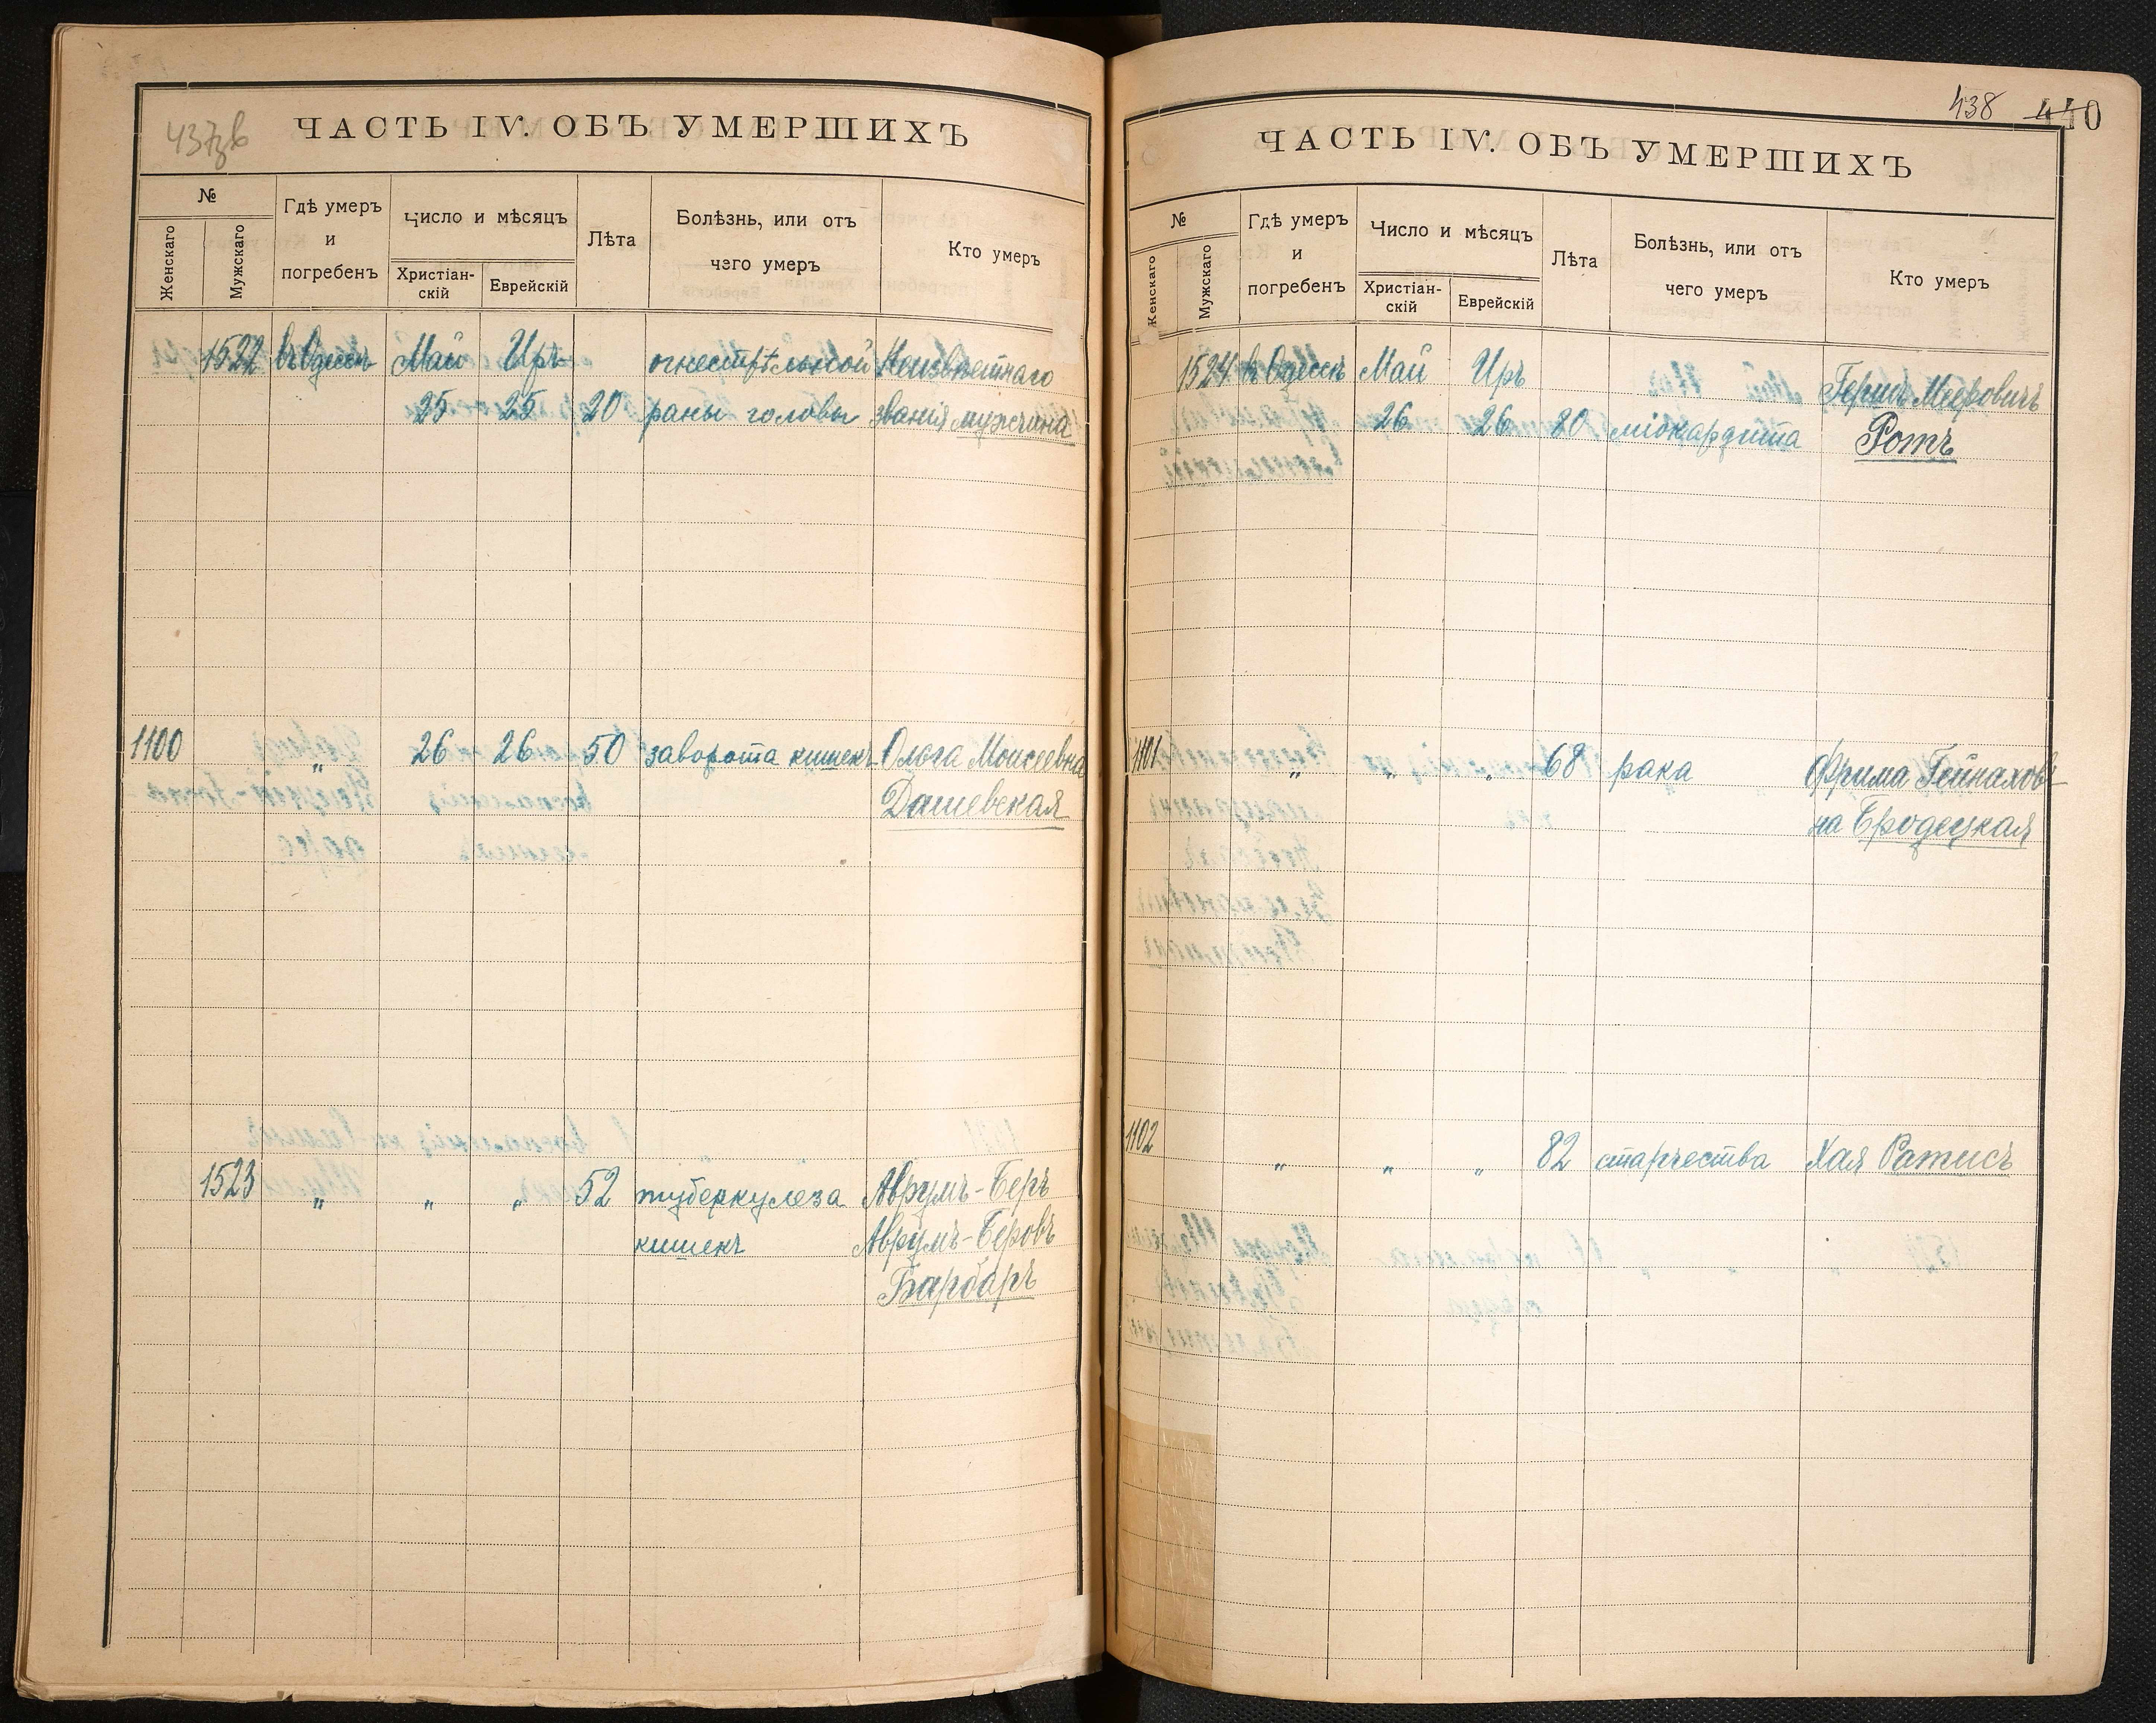 437зв
ЧАСТЬ IV. ОБЪ УМЕРШИХЪ
№
Женскаго
Мужскаго
Гдѣ умеръ
и
погребенъ
Число и мѣсяцъ
Христіан-
скій
Еврейскій
Лѣта
Болѣзнь, или отъ
чего умеръ
Кто умеръ
1522 въ Одессѣ Май Иръ огнестрѣльной Неизвѣстнаго
25 25 20 раны головы званія мужчина
1100 „ 26 26 50 заворота кишекъ Ольга Моисеевна
Дашевская
1523 „ „ „ 52 туберкулеза Аврумъ-Беръ
кишекъ Аврумъ-Беровъ
Барбаръ
438 440
ЧАСТЬ IV. ОБЪ УМЕРШИХЪ
№
Женскаго
Мужскаго
Гдѣ умеръ
и
погребенъ
Число и мѣсяцъ
Христіан-
скій
Еврейскій
Лѣта
Болѣзнь, или отъ
чего умеръ
Кто умеръ
1524 въ Одессѣ Май Иръ Гершъ Мееровичъ
26 26 80 міокардита Ротъ
1101 „ „ „ 68 рака Фрима Гейнахов-
на Бродецкая
1102 „ „ „ 82 старчества Хая Ратисъ